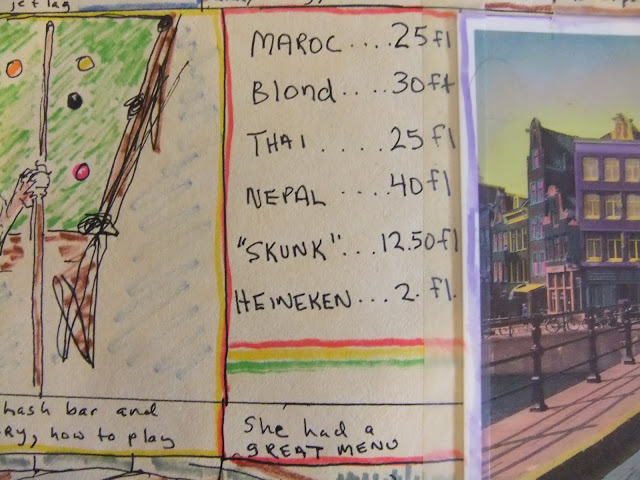 jet lag
MAROC....25 fl
Blond....30 ft
THAI....25 fl
NEPAL....40 fl
"SKUNK"...12.50 fl
HEINEKEN...2. fl.
hash bar and
how to play
She had a
GREAT MENU